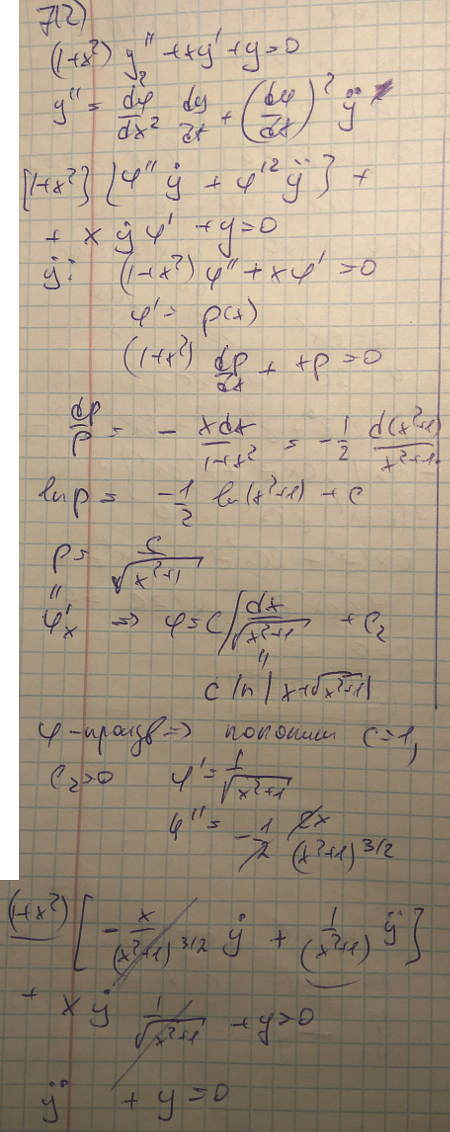 7(2)
(1+x²) y'' + xy' + y = 0
y'' = dφ/dx² dy/dt + (dφ/dt)² ÿ
[1+x²] {φ'' ẏ + φ'² ÿ} +
+ x ẏ φ' + y = 0
ẏ: (1+x²) φ'' + xφ' = 0
φ' = p(x)
(1+x²) dp/dx + xp = 0
dp/p = - xdx/1+x² = - 1/2 d(x²+1)/x²+1
ln p = - 1/2 ln(x²+1) + C
p = C/√x²+1
"
φ'ₓ => φ = C∫dx/√x²+1 + C₂
"
C ln|x+√x²+1|
φ-произв => положим C=1,
C₂=0 φ' = 1/√x²+1
φ'' = - 1/2 2x/(x²+1)^3/2
(1+x²) [- x/(x²+1)^3/2 ẏ + 1/(x²+1) ÿ]
+ x ẏ 1/√x²+1 + y = 0
ÿ + y = 0